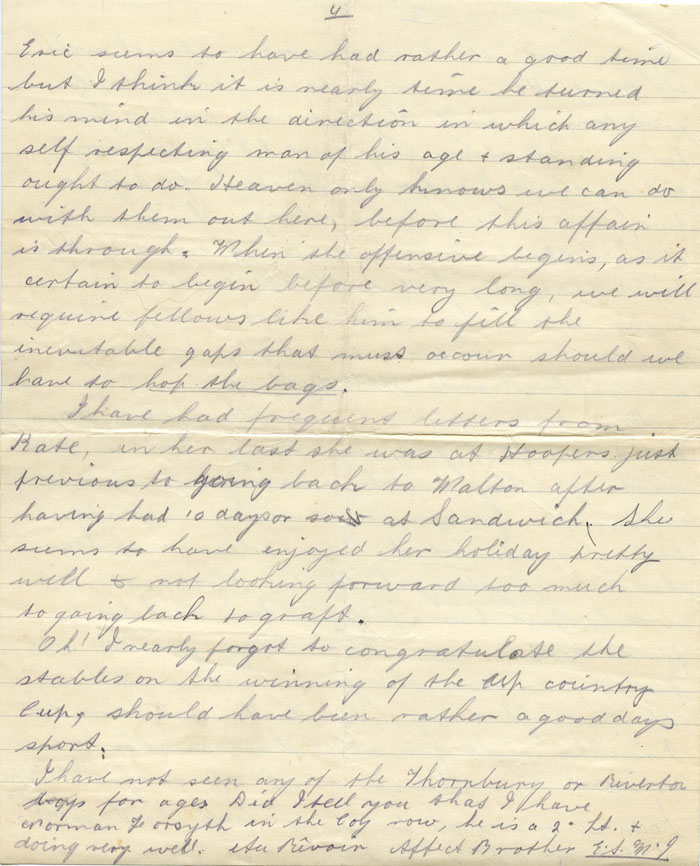 4
Eric seems to have had rather a good time
but I think it is nearly time he turned
his mind in the direction in which any
self respecting man of his age & standing
ought to do. Heaven only knows we can do
with them out here, before this affair
is through. When the offensive begins, as it
certain to begin before very long, we will
require fellows like him to fill the
inevitable gaps that must occour should we
have to hop the bags.
I have had frequent letters from
Kate, in her last she was at Hoopers just
previous to going back to Malton after
having had 10 days or so at Sandwich. She
seems to have enjoyed her holiday pretty
well & not looking forward too much
to going back to graft.
Oh! I nearly forgot to congratulate the
stables on the winning of the up country
Cup, should have been rather a good days
sport.
I have not seen any of the Thornbury or Riverton
boys for ages Did I tell you that I have
Norman Forsyth in the Coy now, he is a 2º Lt. &
doing very well. Au Revoir Affect Brother E.S. McJ